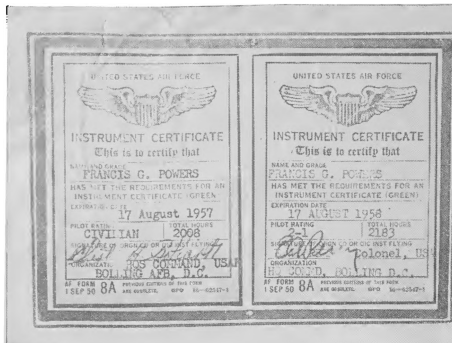 UNITED STATES AIR FORCE
INSTRUMENT CERTIFICATE
This is to certify that
NAME AND GRADE
FRANCIS G. POWERS
HAS MET THE REQUIREMENTS FOR AN
INSTRUMENT CERTIFICATE (GREEN)
EXPIRATION DATE
17 August 1957
PILOT RATING
TOTAL HOURS
CIVILIAN
2008
ORGANIZATION
HQS COMMAND, USAF
BOLLING AFB, D.C.
AF FORM 8A
1 SEP 50
PREVIOUS EDITIONS OF THIS FORM
ARE OBSOLETE.
GPO 16—62547-1
UNITED STATES AIR FORCE
INSTRUMENT CERTIFICATE
This is to certify that
NAME AND GRADE
FRANCIS G. POWERS
HAS MET THE REQUIREMENTS FOR AN
INSTRUMENT CERTIFICATE (GREEN)
EXPIRATION DATE
17 AUGUST 1958
PILOT RATING
TOTAL HOURS
2183
Colonel, US
ORGANIZATION
BOLLING D.C.
AF FORM 8A
1 SEP 50
PREVIOUS EDITIONS OF THIS FORM
ARE OBSOLETE.
GPO 16—62547-1